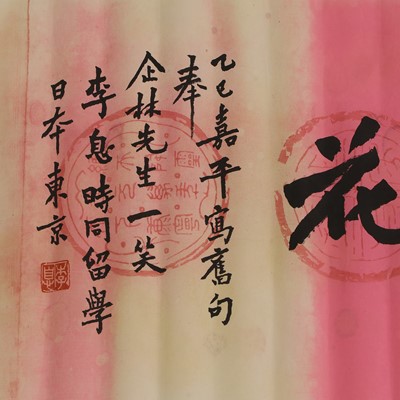 花
乙巳嘉平寫舊句
奉
企林先生一笑
李息時同留學
日本東京